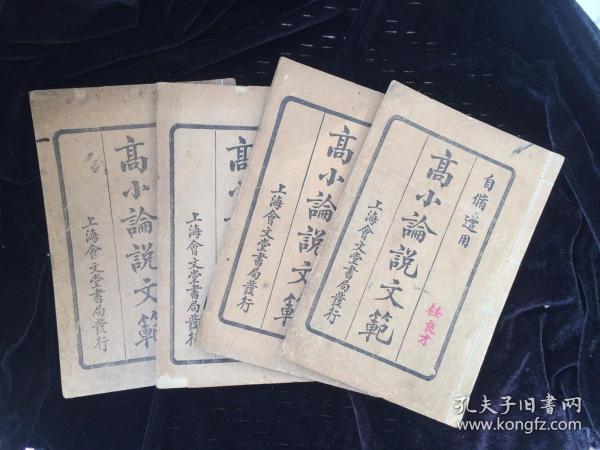 自脩適用
高小論說文範
任良才
上海會文堂書局發行
高小論說文範
上海會文堂書局發行
高小
上海會文堂書局發行
高小論說文範
上海會文堂書局發行
孔夫子旧书网
www.kongfz.com